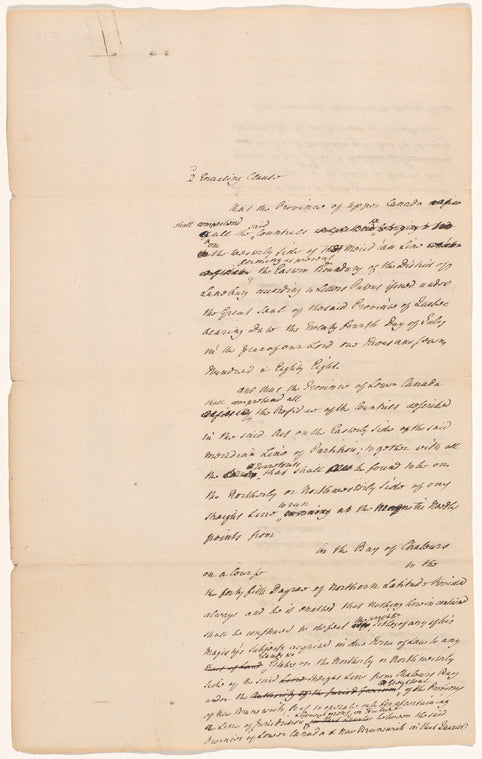 2 Enacting Clause
that the Province of Upper Canada
shall comprehend said
all the Countries
on
the Westerly side of that Meridian Line
forming as present
the Eastern Boundary of the District of
Lunenburg according to Letters Patent issued under
the Great Seal of the said Province of Quebec
bearing Date the Twenty fourth Day of July
in the Year of our Lord one thousand seven
Hundred & Eighty Eight.
and that the Province of Lower Canada
shall comprehend all
the Residue of the Countries described
in the said Act on the Easterly side of the said
meridian Line of Partition; together with all
the Countries that shall be found to be on
the Northerly or Northwesterly side of any
to run
straight Line running as the Magnetic Needle
points from
in the Bay of Chaleurs
on a Course to the
the forty fifth Degree of Northern Latitude Provided
always and be it enacted that nothing herein contained
shall be construed to defeat the rights of any of his
Majesty's Subjects acquired in due Form of Law to any
Estates on the Northerly or Northwesterly
side of the said straight Line from Chaleurs Bay
under the of the Province
of New Brunswick but for ascertaining
a Line of Jurisdiction between the said
Provinces of Lower Canada & New Brunswick in that Quarter